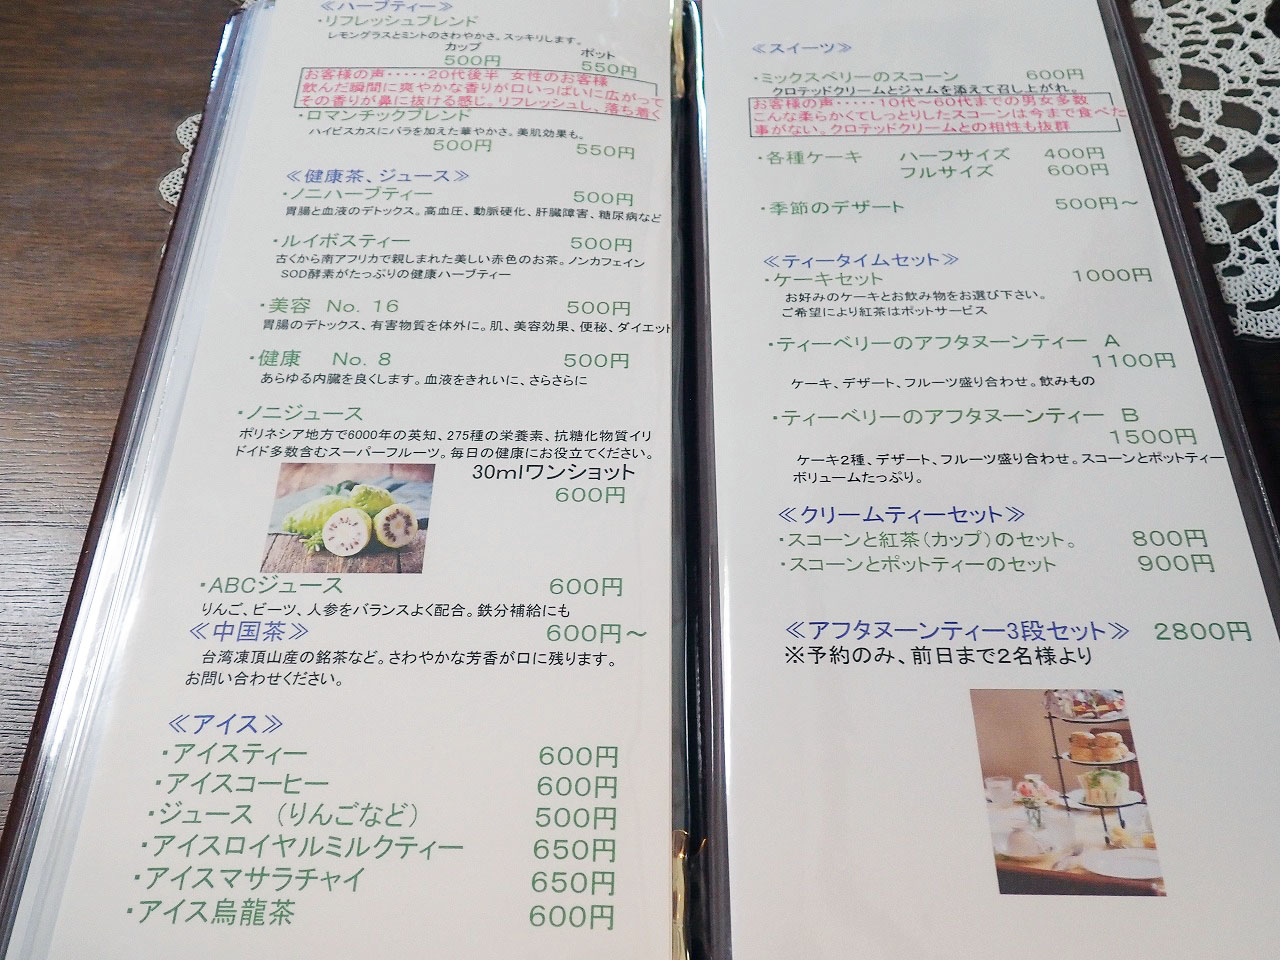 ≪ハーブティー≫
・リフレッシュブレンド
レモングラスとミントのさわやかさ、スッキリします。
カップ ポット
500円 550円
お客様の声・・・・・20代後半 女性のお客様
飲んだ瞬間に爽やかな香りが口いっぱいに広がって
その香りが鼻に抜ける感じ。リフレッシュし、落ち着く
・ロマンチックブレンド
ハイビスカスにバラを加えた華やかさ。美肌効果も。
500円 550円
≪健康茶、ジュース≫
・ノニハーブティー 500円
胃腸と血液のデトックス。高血圧、動脈硬化、肝臓障害、糖尿病など
・ルイボスティー 500円
古くから南アフリカで親しまれた美しい赤色のお茶。ノンカフェイン
SOD酵素がたっぷりの健康ハーブティー
・美容 No. 16 500円
胃腸のデトックス、有害物質を体外に。肌、美容効果、便秘、ダイエット
・健康 No. 8 500円
あらゆる内臓を良くします。血液をきれいに、さらさらに
・ノニジュース
ポリネシア地方で6000年の英知、275種の栄養素、抗糖化物質イリ
ドイド多数含むスーパーフルーツ。毎日の健康にお役立てください。
30mlワンショット
600円
・ABCジュース 600円
りんご、ビーツ、人参をバランスよく配合。鉄分補給にも
≪中国茶≫ 600円～
台湾凍頂山産の銘茶など。さわやかな芳香が口に残ります。
お問い合わせください。
≪アイス≫
・アイスティー 600円
・アイスコーヒー 600円
・ジュース （りんごなど） 500円
・アイスロイヤルミルクティー 650円
・アイスマサラチャイ 650円
・アイス烏龍茶 600円
≪スイーツ≫
・ミックスベリーのスコーン 600円
クロテッドクリームとジャムを添えて召し上がれ。
お客様の声・・・・・10代～60代までの男女多数
こんな柔らかくてしっとりしたスコーンは今まで食べた
事がない。クロテッドクリームとの相性も抜群
・各種ケーキ ハーフサイズ 400円
フルサイズ 600円
・季節のデザート 500円～
≪ティータイムセット≫
・ケーキセット 1000円
お好みのケーキとお飲み物をお選び下さい。
ご希望により紅茶はポットサービス
・ティーベリーのアフタヌーンティー A
1100円
ケーキ、デザート、フルーツ盛り合わせ。飲みもの
・ティーベリーのアフタヌーンティー B
1500円
ケーキ2種、デザート、フルーツ盛り合わせ。スコーンとポットティー
ボリュームたっぷり。
≪クリームティーセット≫
・スコーンと紅茶（カップ）のセット。 800円
・スコーンとポットティーのセット 900円
≪アフタヌーンティー3段セット≫ 2800円
※予約のみ、前日まで2名様より